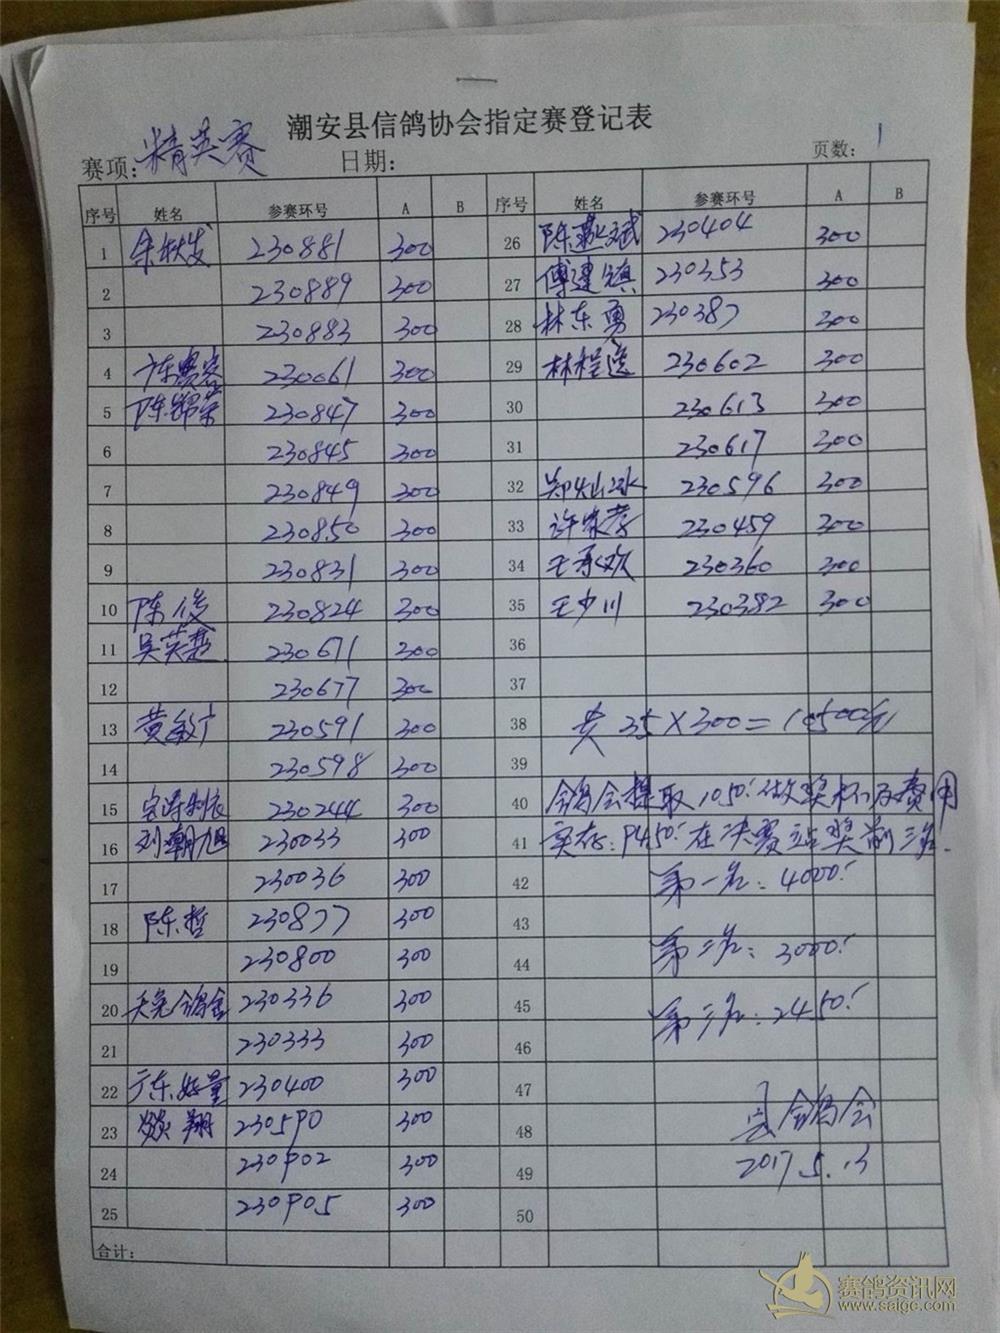 潮安县信鸽协会指定赛登记表
赛项: 精英赛 日期: 页数: 1
序号 姓名 参赛环号 A B 序号 姓名 参赛环号 A B
1 余秋发 230881 300 26 陈 斌 230404 300
2 230889 300 27 傅建镇 230353 300
3 230883 300 28 林东勇 230387 300
4 230061 300 29 林程逵 230602 300
5 陈锦荣 230847 300 30 230613 300
6 230845 300 31 230617 300
7 230849 300 32 郑灿冰 230596 300
8 230850 300 33 许 230459 300
9 230831 300 34 王承欢 230360 300
10 陈俊 230824 300 35 王少川 230382 300
11 吴英楚 230671 300 36
12 230677 300 37
13 黄 230591 300 38 共 35×300=10500元
14 230598 300 39
15 230244 300 40 鸽会提取1050.做奖杯及费用
16 刘朝旭 230033 300 41 实存:9450.在决赛站奖前三名.
17 230036 300 42 第一名: 4000.
18 陈哲 230877 300 43
19 230800 300 44 第二名: 3000.
20 天 鸽舍 230336 300 45 第三名: 2450.
21 230333 300 46
22 广东 量 230400 300 47
23 翔 230590 300 48 县鸽会
24 230902 300 49 2017.5.13
25 230905 300 50
合计:
赛鸽资讯网
www.saigc.com